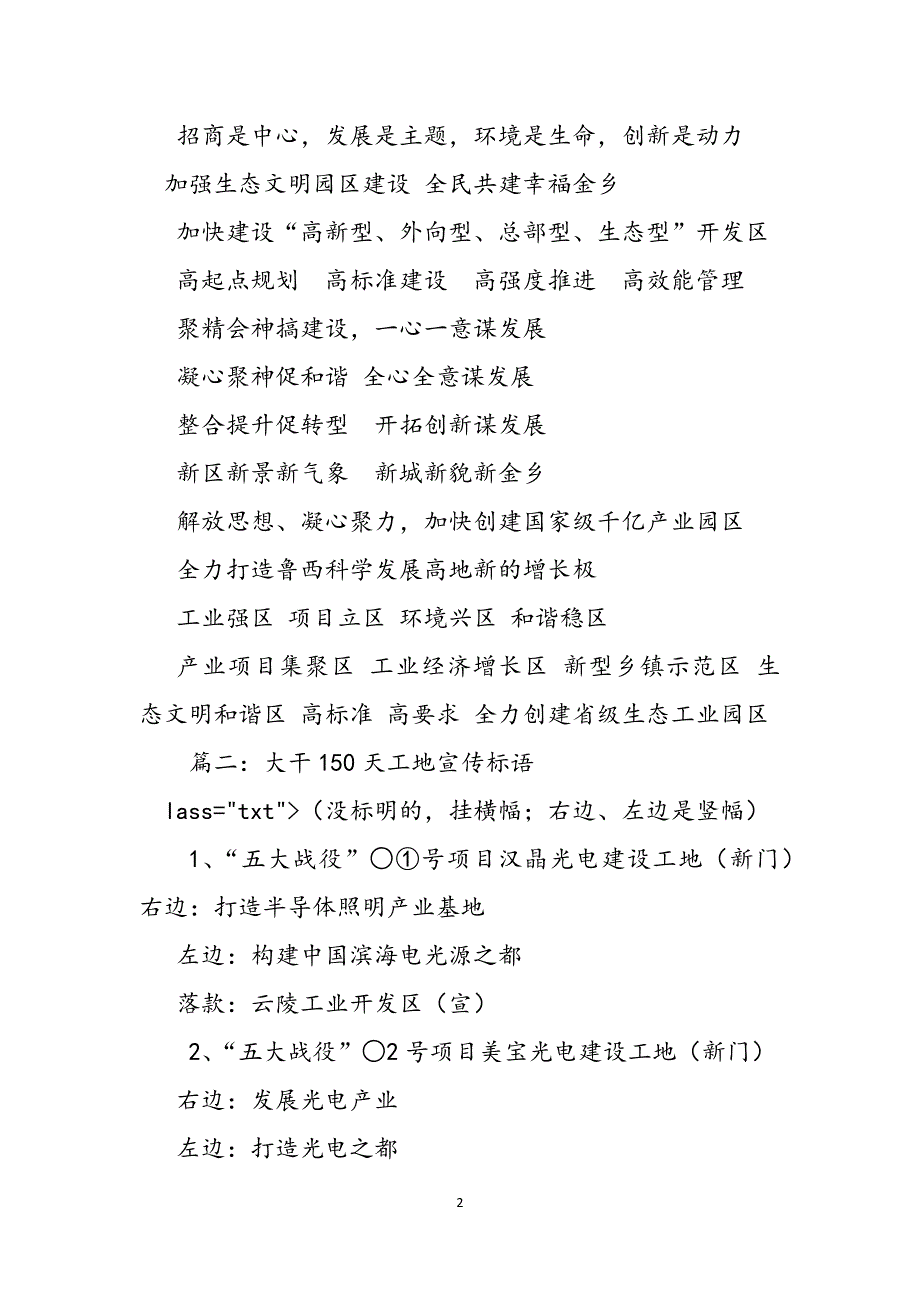 招商是中心，发展是主题，环境是生命，创新是动力
加强生态文明园区建设 全民共建幸福金乡
加快建设“高新型、外向型、总部型、生态型”开发区
高起点规划　高标准建设　高强度推进　高效能管理
聚精会神搞建设，一心一意谋发展
凝心聚神促和谐 全心全意谋发展
整合提升促转型　开拓创新谋发展
新区新景新气象　新城新貌新金乡
解放思想、凝心聚力，加快创建国家级千亿产业园区
全力打造鲁西科学发展高地新的增长极
工业强区 项目立区 环境兴区 和谐稳区
产业项目集聚区 工业经济增长区 新型乡镇示范区 生
态文明和谐区 高标准 高要求 全力创建省级生态工业园区
篇二：大干150天工地宣传标语
lass="txt">（没标明的，挂横幅；右边、左边是竖幅）
1、“五大战役”〇①号项目汉晶光电建设工地（新门）
右边：打造半导体照明产业基地
左边：构建中国滨海电光源之都
落款：云陵工业开发区（宣）
2、“五大战役”〇2号项目美宝光电建设工地（新门）
右边：发展光电产业
左边：打造光电之都
2